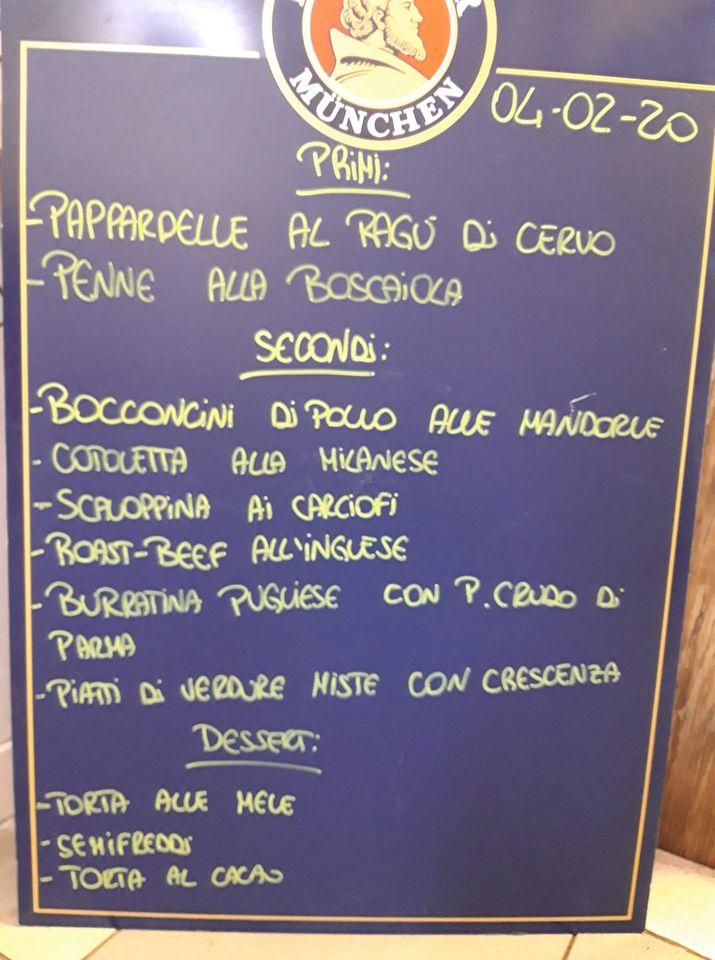 MÜNCHEN
04-02-20
PRIMI:
-PAPPARDELLE AL RAGÚ Di CERVO
-PENNE ALLA BOSCAiOLA
SECONDi:
-BOCCONCiNi Di POLLO ALLE MANDORLE
- COTOLETTA ALLA MiLANESE
-SCALOPPiNA Ai CARCiOFi
-ROAST-BEEF ALL'iNGLESE
-BURRATiNA PUGLiESE CON P. CRUDO Di
PARMA
-PiATTi Di VERDURE MiSTE CON CRESCENZA
DESSERT:
-TORTA ALLE MELE
-SEMiFREDDi
- TORTA AL CACAO